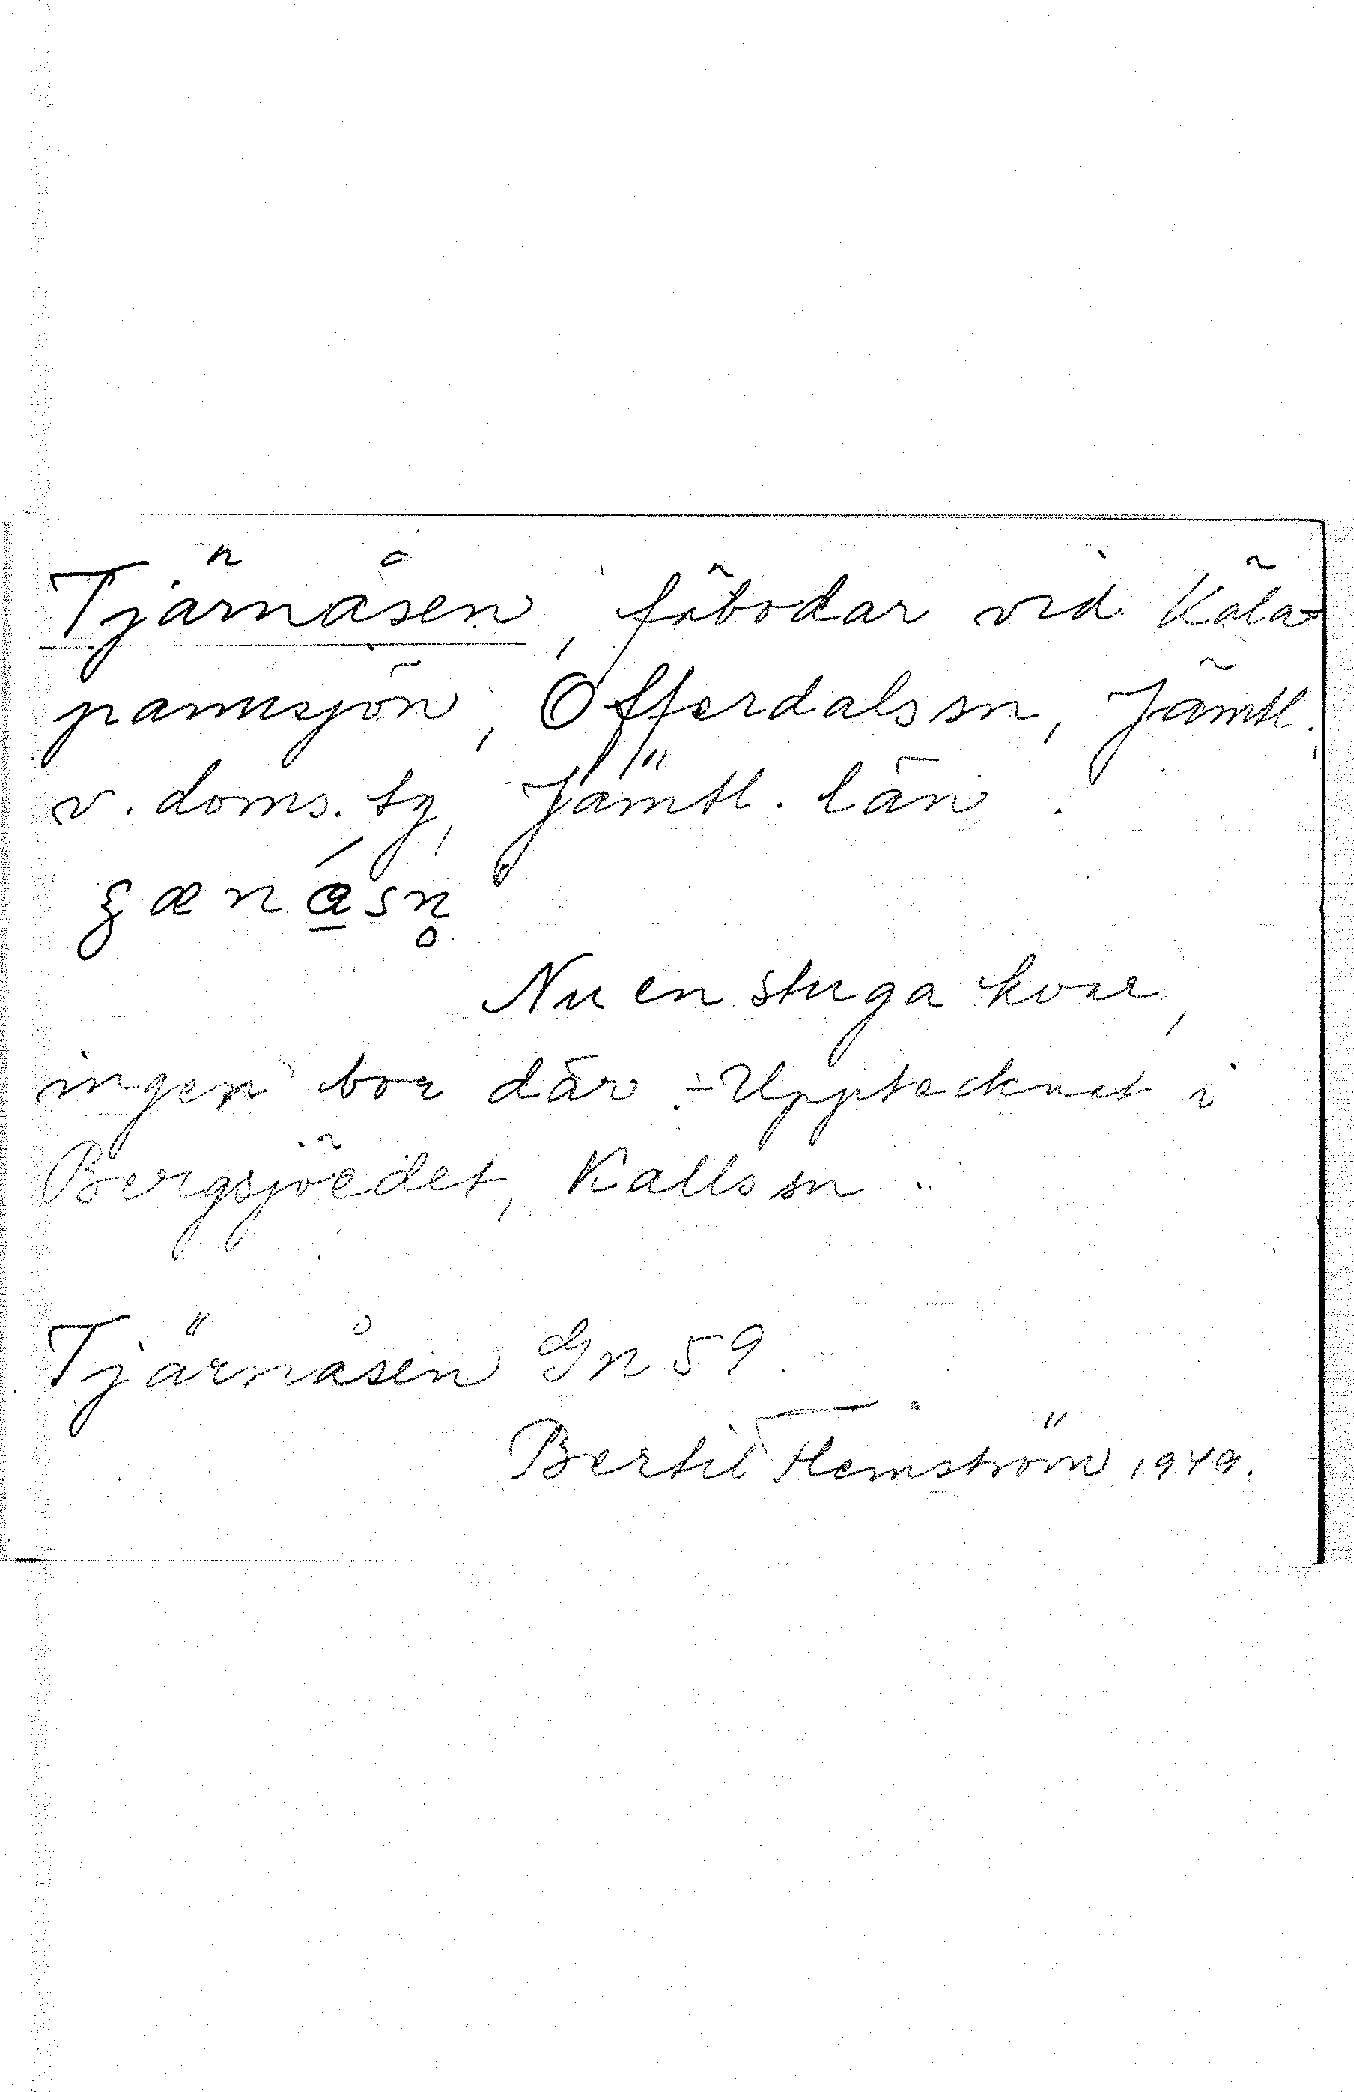 Tjärnåsen, fäbodar vid Käla-
pannsjön, Offerdals sn, Jämtl.
v. doms. tg, Jämtl. län.
Nu en stuga kvar,
ingen bor där. - Upptecknat i
Bergsjöedet, Kalls sn.
Tjärnåsen Gn 59
Bertil Hemström 1949.